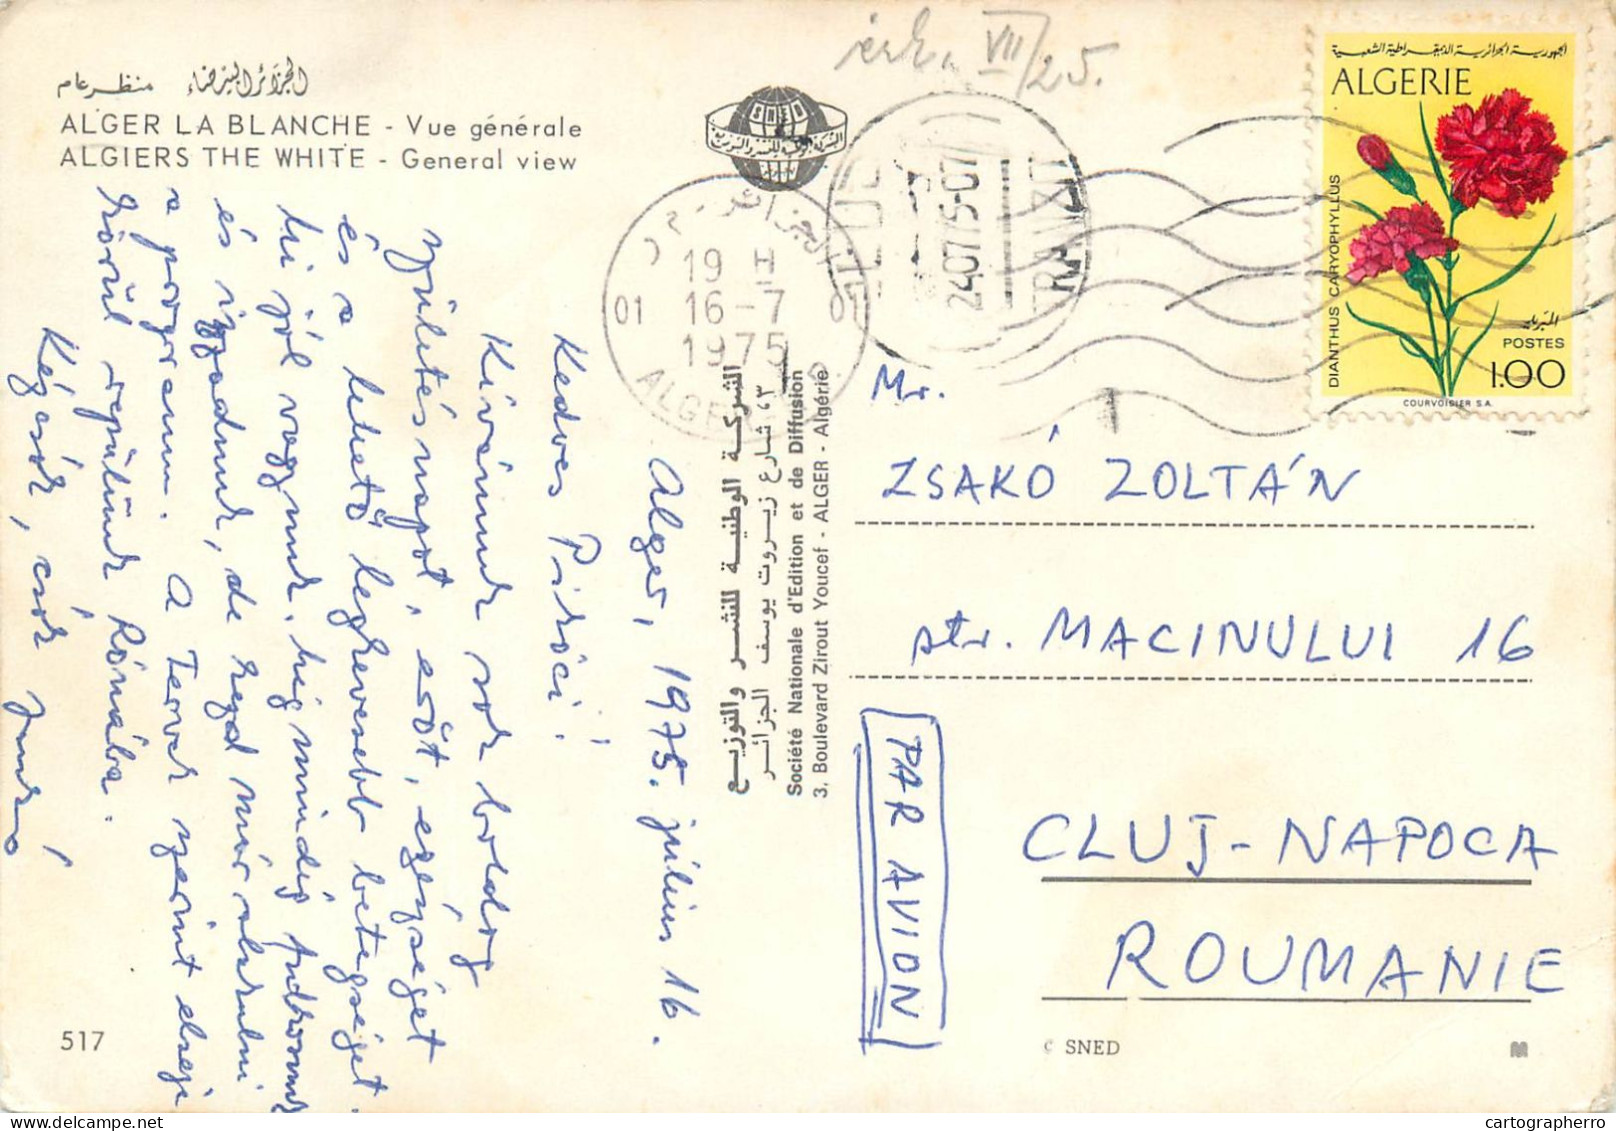 الجزائر البيضاء منظر عام
ALGER LA BLANCHE - Vue générale
ALGIERS THE WHITE - General view
érk. VII/25.
SNED
الجمهورية الجزائرية الديمقراطية الشعبية
ALGERIE
DIANTHUS CARYOPHYLLUS
البريد
POSTES
1.00
COURVOISIER S.A.
19 H
01 16-7 01
1975
ALGER
CLUJ
24.07.75-07
TRANZIT
Alger, 1975. július 16.
Kedves Piróci!
Kívánunk sok boldog
születésnapot, erőt, egészséget
és a lehető legkevesebb betegséget.
Mi jól vagyunk, míg mindig
és izzadunk, de kezd már alakulni
a programm. A Tervek szerint eleje
körül repülünk Rómába.
Kézcsók, csók
الشركة الوطنية للنشر والتوزيع
٣ شارع زيروت يوسف الجزائر
Société Nationale d'Edition et de Diffusion
3, Boulevard Zirout Youcef - ALGER - Algérie
Mr.
ZSAKÓ ZOLTÁN
str. MACINULUI 16
PAR AVION
CLUJ-NAPOCA
ROUMANIE
517
© SNED
M
cartographerro